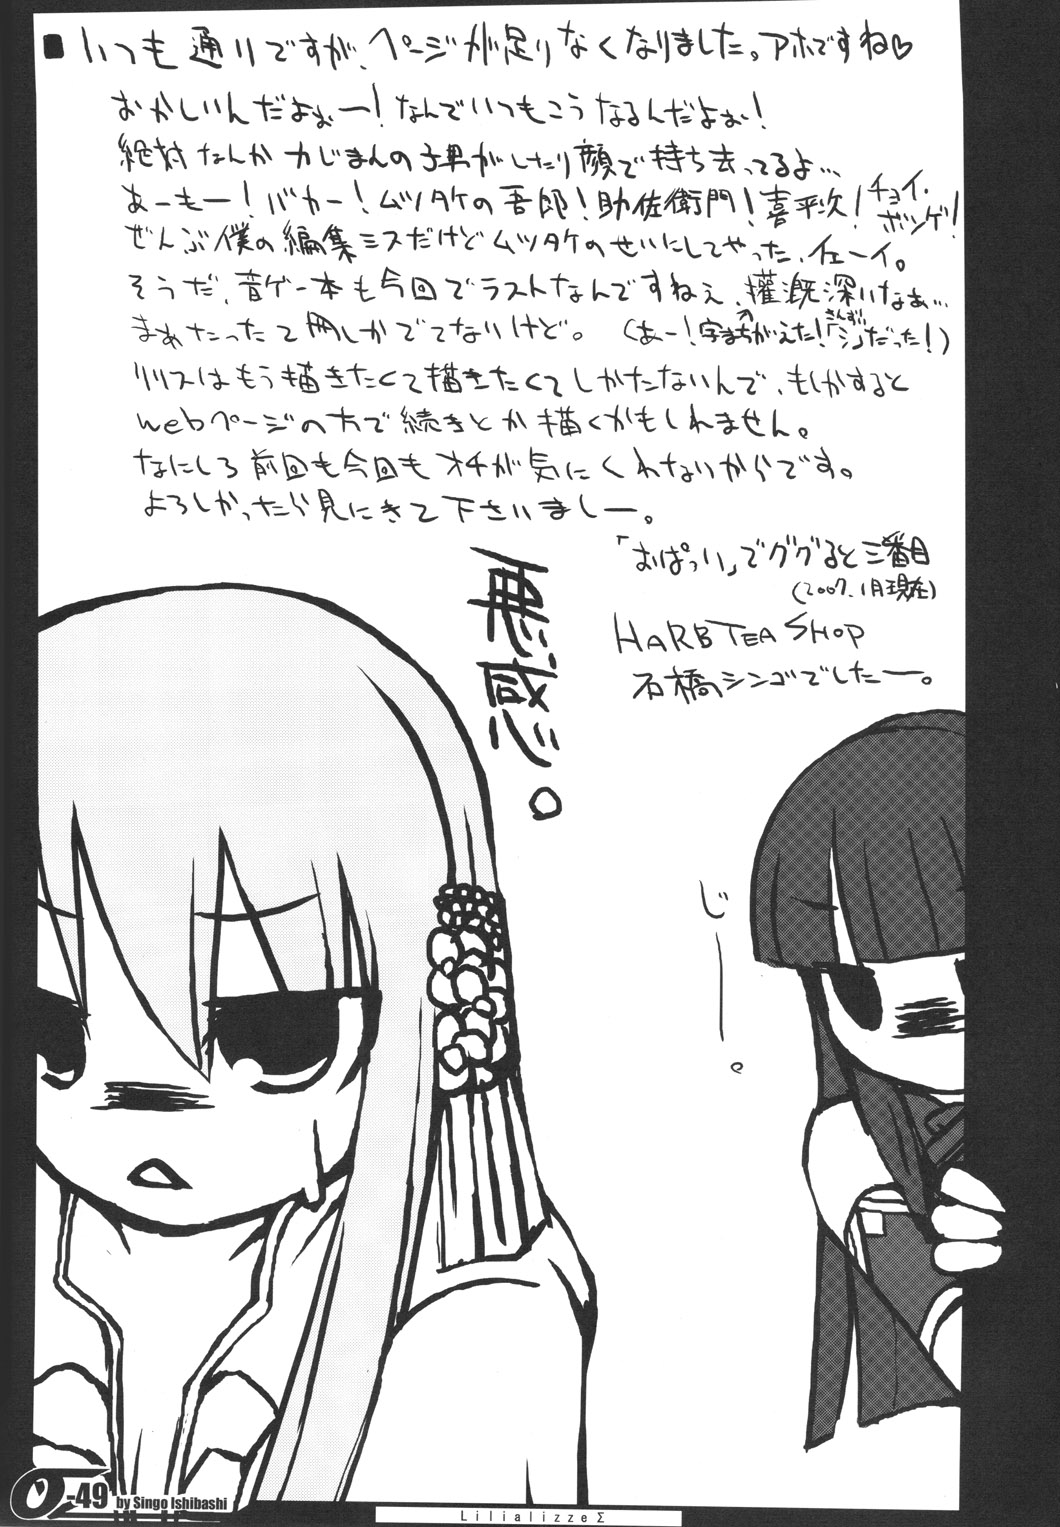 ■いつも通りですが、ページが足りなくなりました。アホですね♡
おかしいんだよぉー！なんでいつもこうなるんだよぉ！
絶対なんかカじまんの子男がしたり顔で持ち去ってるよ…
あーもー！バカー！ムツタケの吾郎！助佐衛門！喜平次！チョイ・ボンゲ！
ぜんぶ僕の編集ミスだけどムツタケのせいにしてやった、イェーイ。
そうだ、音ゲー本も今回でラストなんですねぇ、灌漑深いなぁ…
まぁたったて冊しかでてないけど。（あー！字まちがえた！「シ」だった！）
さんずい
リリスはもう描きたくて描きたくてしかたないんで、もしかすると
webページの方で続きとか描くかもしれません。
なにしろ前回も今回もオチが気にくわないからです。
よろしかったら見にきて下さいましー。
「おぱっい」でググると三番目
（2007.1月現在）
HARB TEA SHOP
石橋シンゴでしたー。
悪感ジ。
じー。
σ-49
by Singo Ishibashi
LilializzeΣ